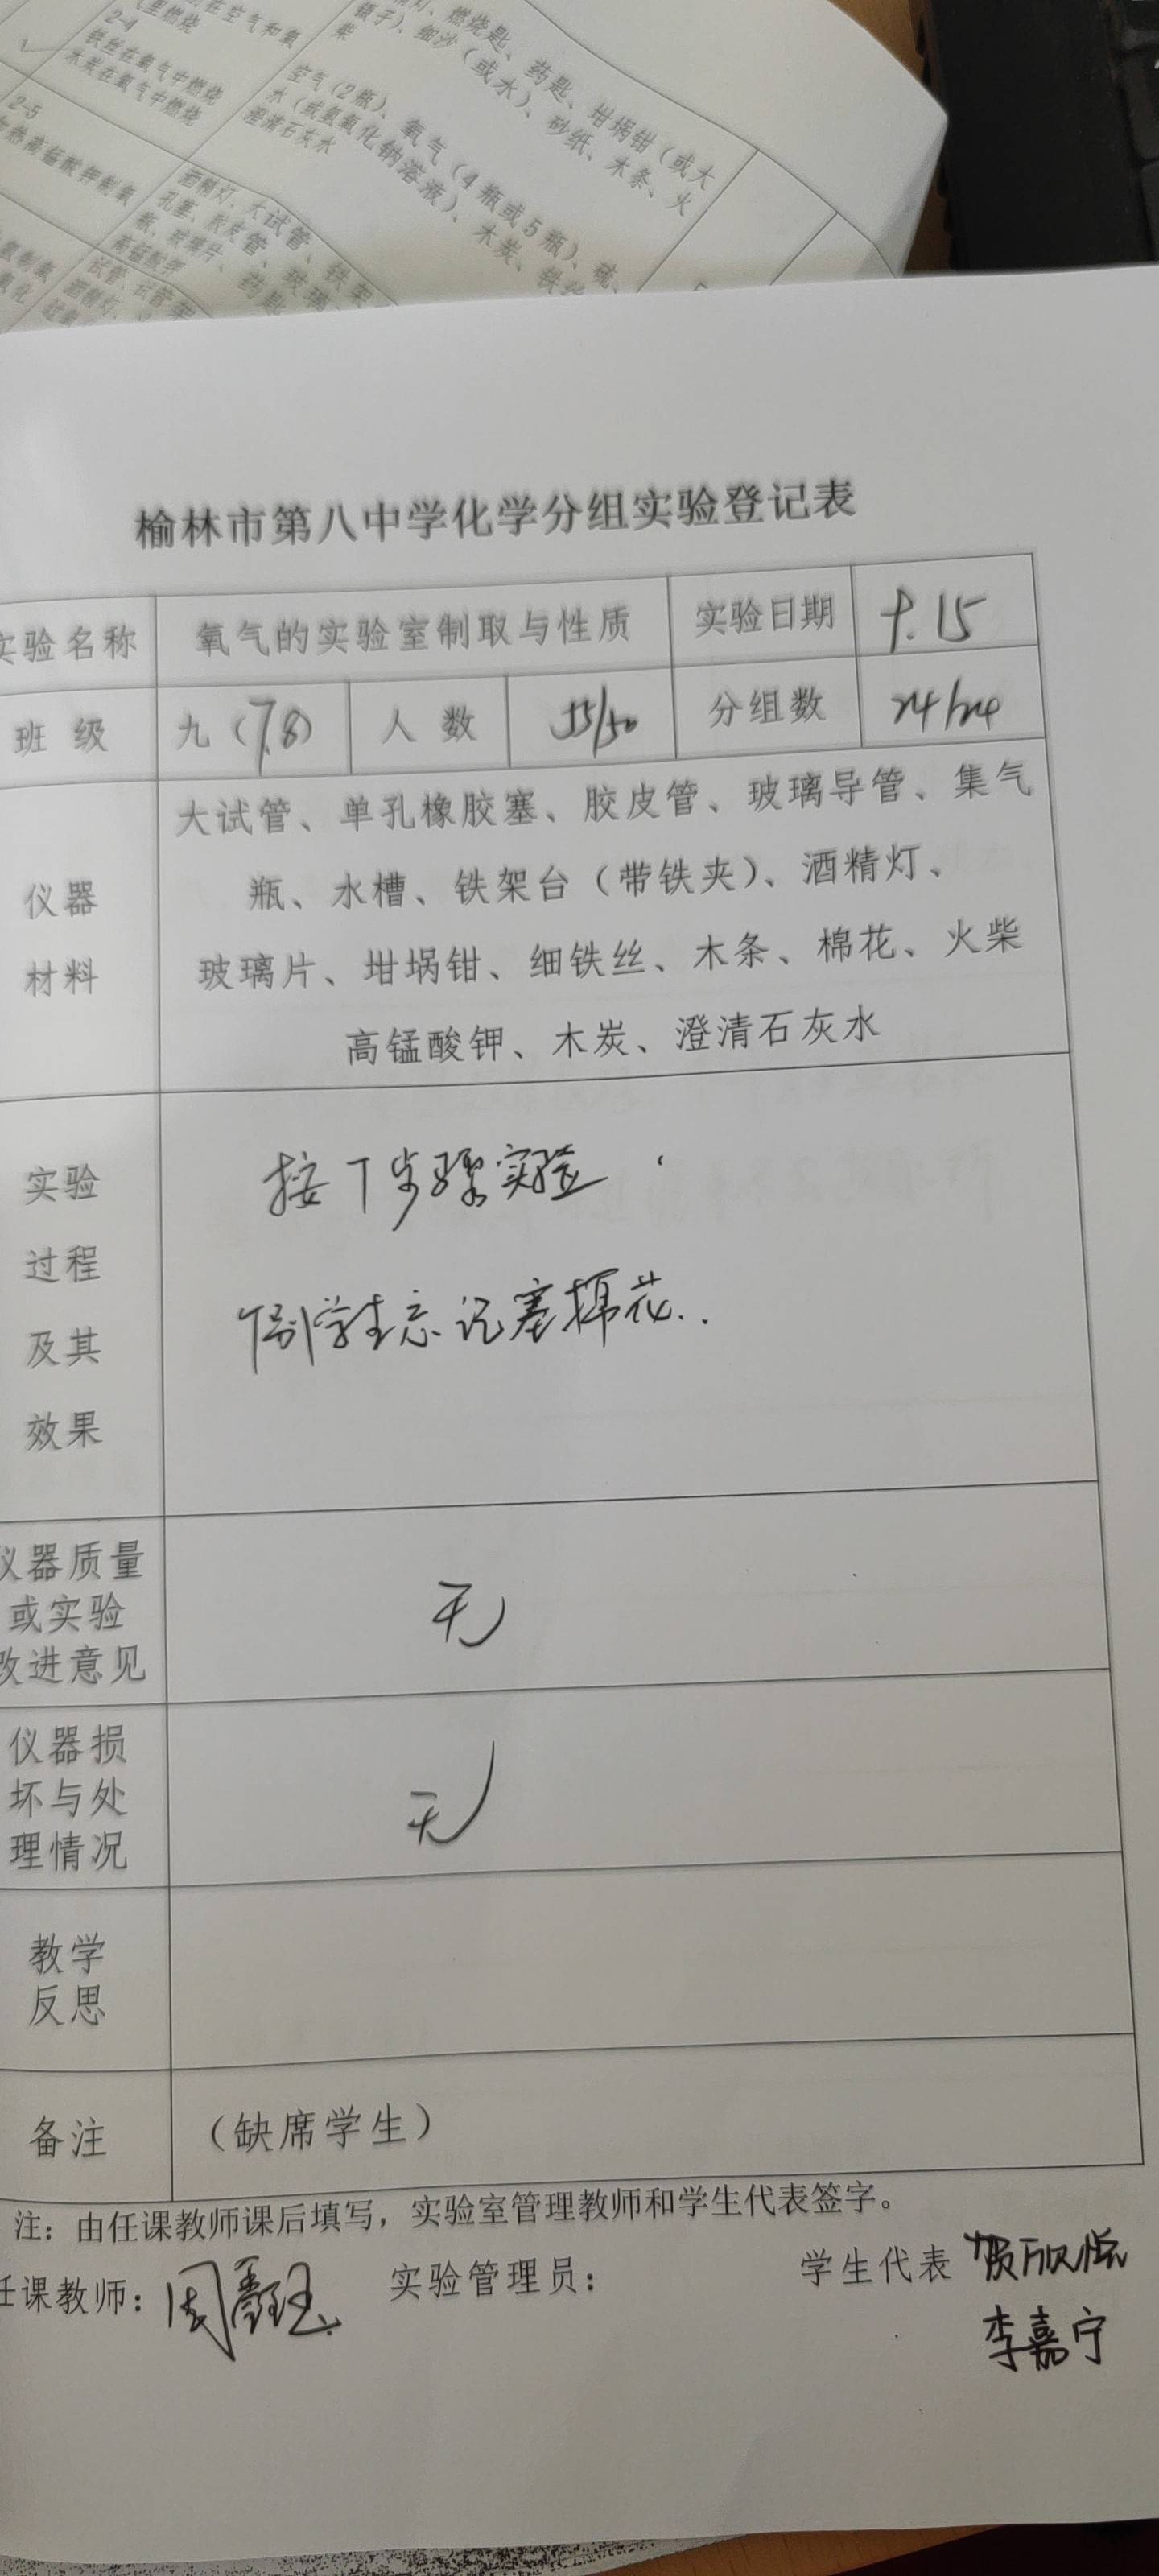 2-4
铁丝在氧气中燃烧
木炭在氧气中燃烧
2-5
燃烧匙、药匙、坩埚钳(或大
镊子)、细沙(或水)、砂纸、木条、火
柴
空气(2瓶)、氧气(4瓶或5瓶)、硫、
水(或氢氧化钠溶液)、木炭、铁丝
澄清石灰水
酒精灯、大试管、铁架
榆林市第八中学化学分组实验登记表
实验名称 氧气的实验室制取与性质 实验日期 9.15
班 级 九(7.8) 人 数 55/50 分组数 24/24
大试管、单孔橡胶塞、胶皮管、玻璃导管、集气
仪器 瓶、水槽、铁架台(带铁夹)、酒精灯、
材料 玻璃片、坩埚钳、细铁丝、木条、棉花、火柴
高锰酸钾、木炭、澄清石灰水
实验 按下步骤实验
过程
及其 个别学生忘记塞棉花..
效果
仪器质量
或实验 无
改进意见
仪器损
坏与处 无
理情况
教学
反思
备注 (缺席学生)
注:由任课教师课后填写,实验室管理教师和学生代表签字。
任课教师:周 实验管理员: 学生代表 贺欣悦
李嘉宁